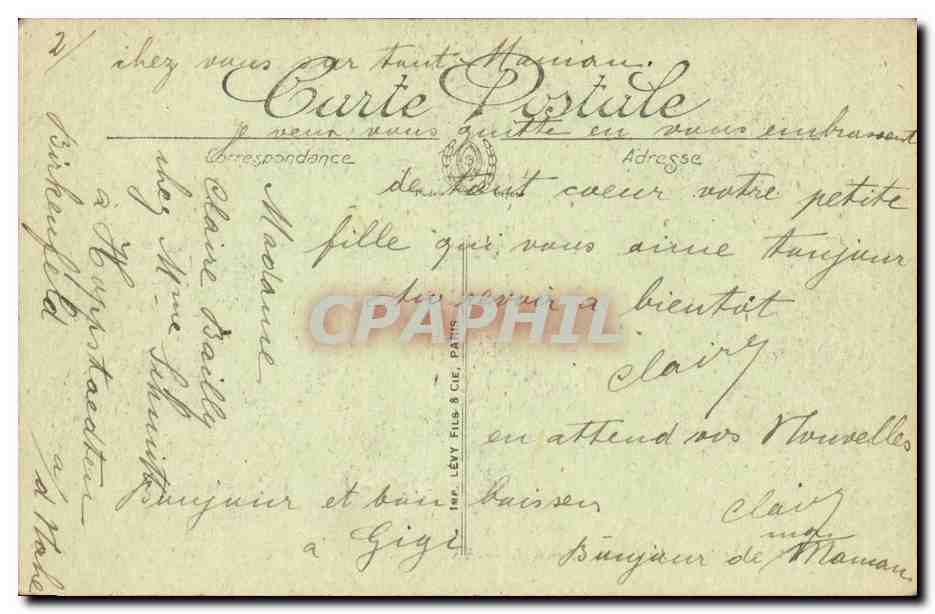 2/
chez vous sur tout Maman.
Carte Postale
je veux vous quitte en vous embrassent
Correspondance
Adresse
de tout coeur votre petite
fille qui vous aime toujour
au revoir a bientot
Claire
en attend vos Nouvelles
Bonjour et bon baiser
à Gigi
Claire
Bonjour de Maman
Madame
Claire Bailly
chez Mme Schmitt
à Hoppstaedten
Birkenfeld à d Nohe
IMP. LÉVY FILS & CIE, PARIS
CPAPHIL